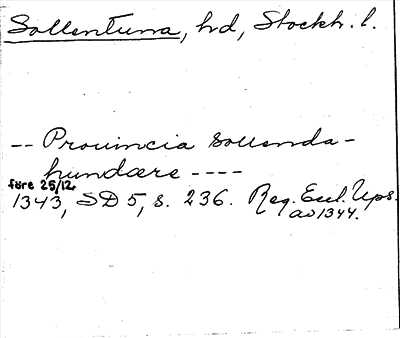 Sollentuna, hd, Stockh. l.
-- Prouincia Sollenda-
hundære ----
före 25/12
1343, SD 5, s. 236. Reg. Eccl. Ups.
av 1344.